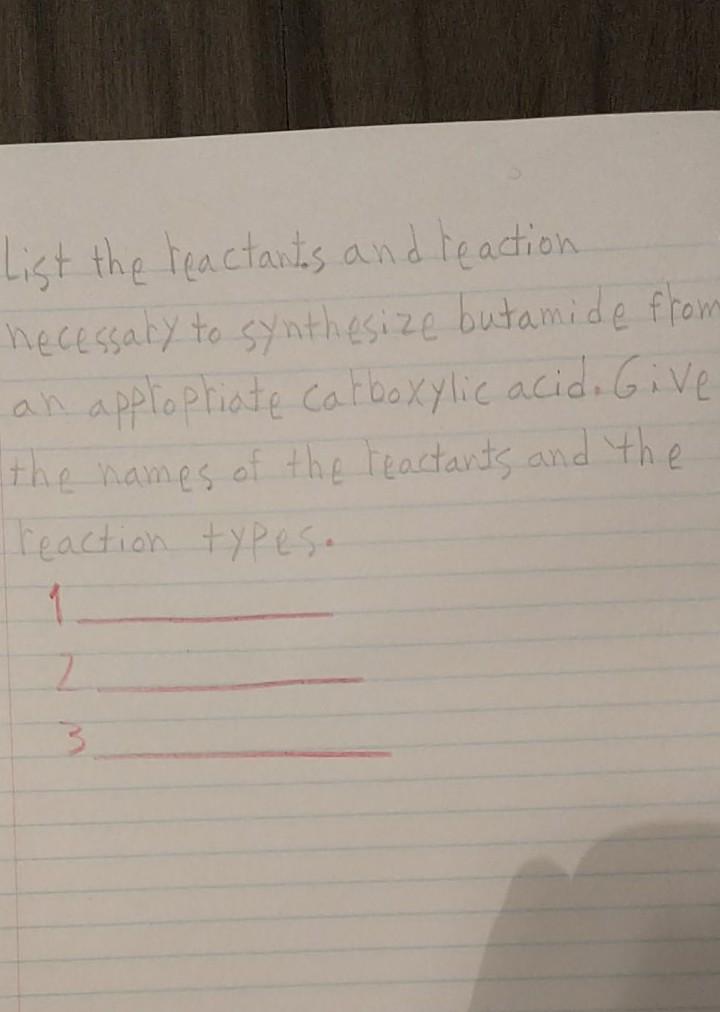 List the reactants and reaction
necessary to synthesize butamide from
an appropriate carboxylic acid. Give
the names of the reactants and the
reaction types.
1
2
3